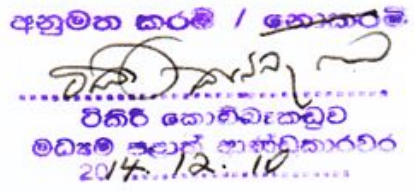 අනුමත කරමි / නොකරමි
ටිකිරි කොබ්බෑකඩුව
මධ්‍යම පළාත් ආණ්ඩුකාරවර
2014. 12. 10